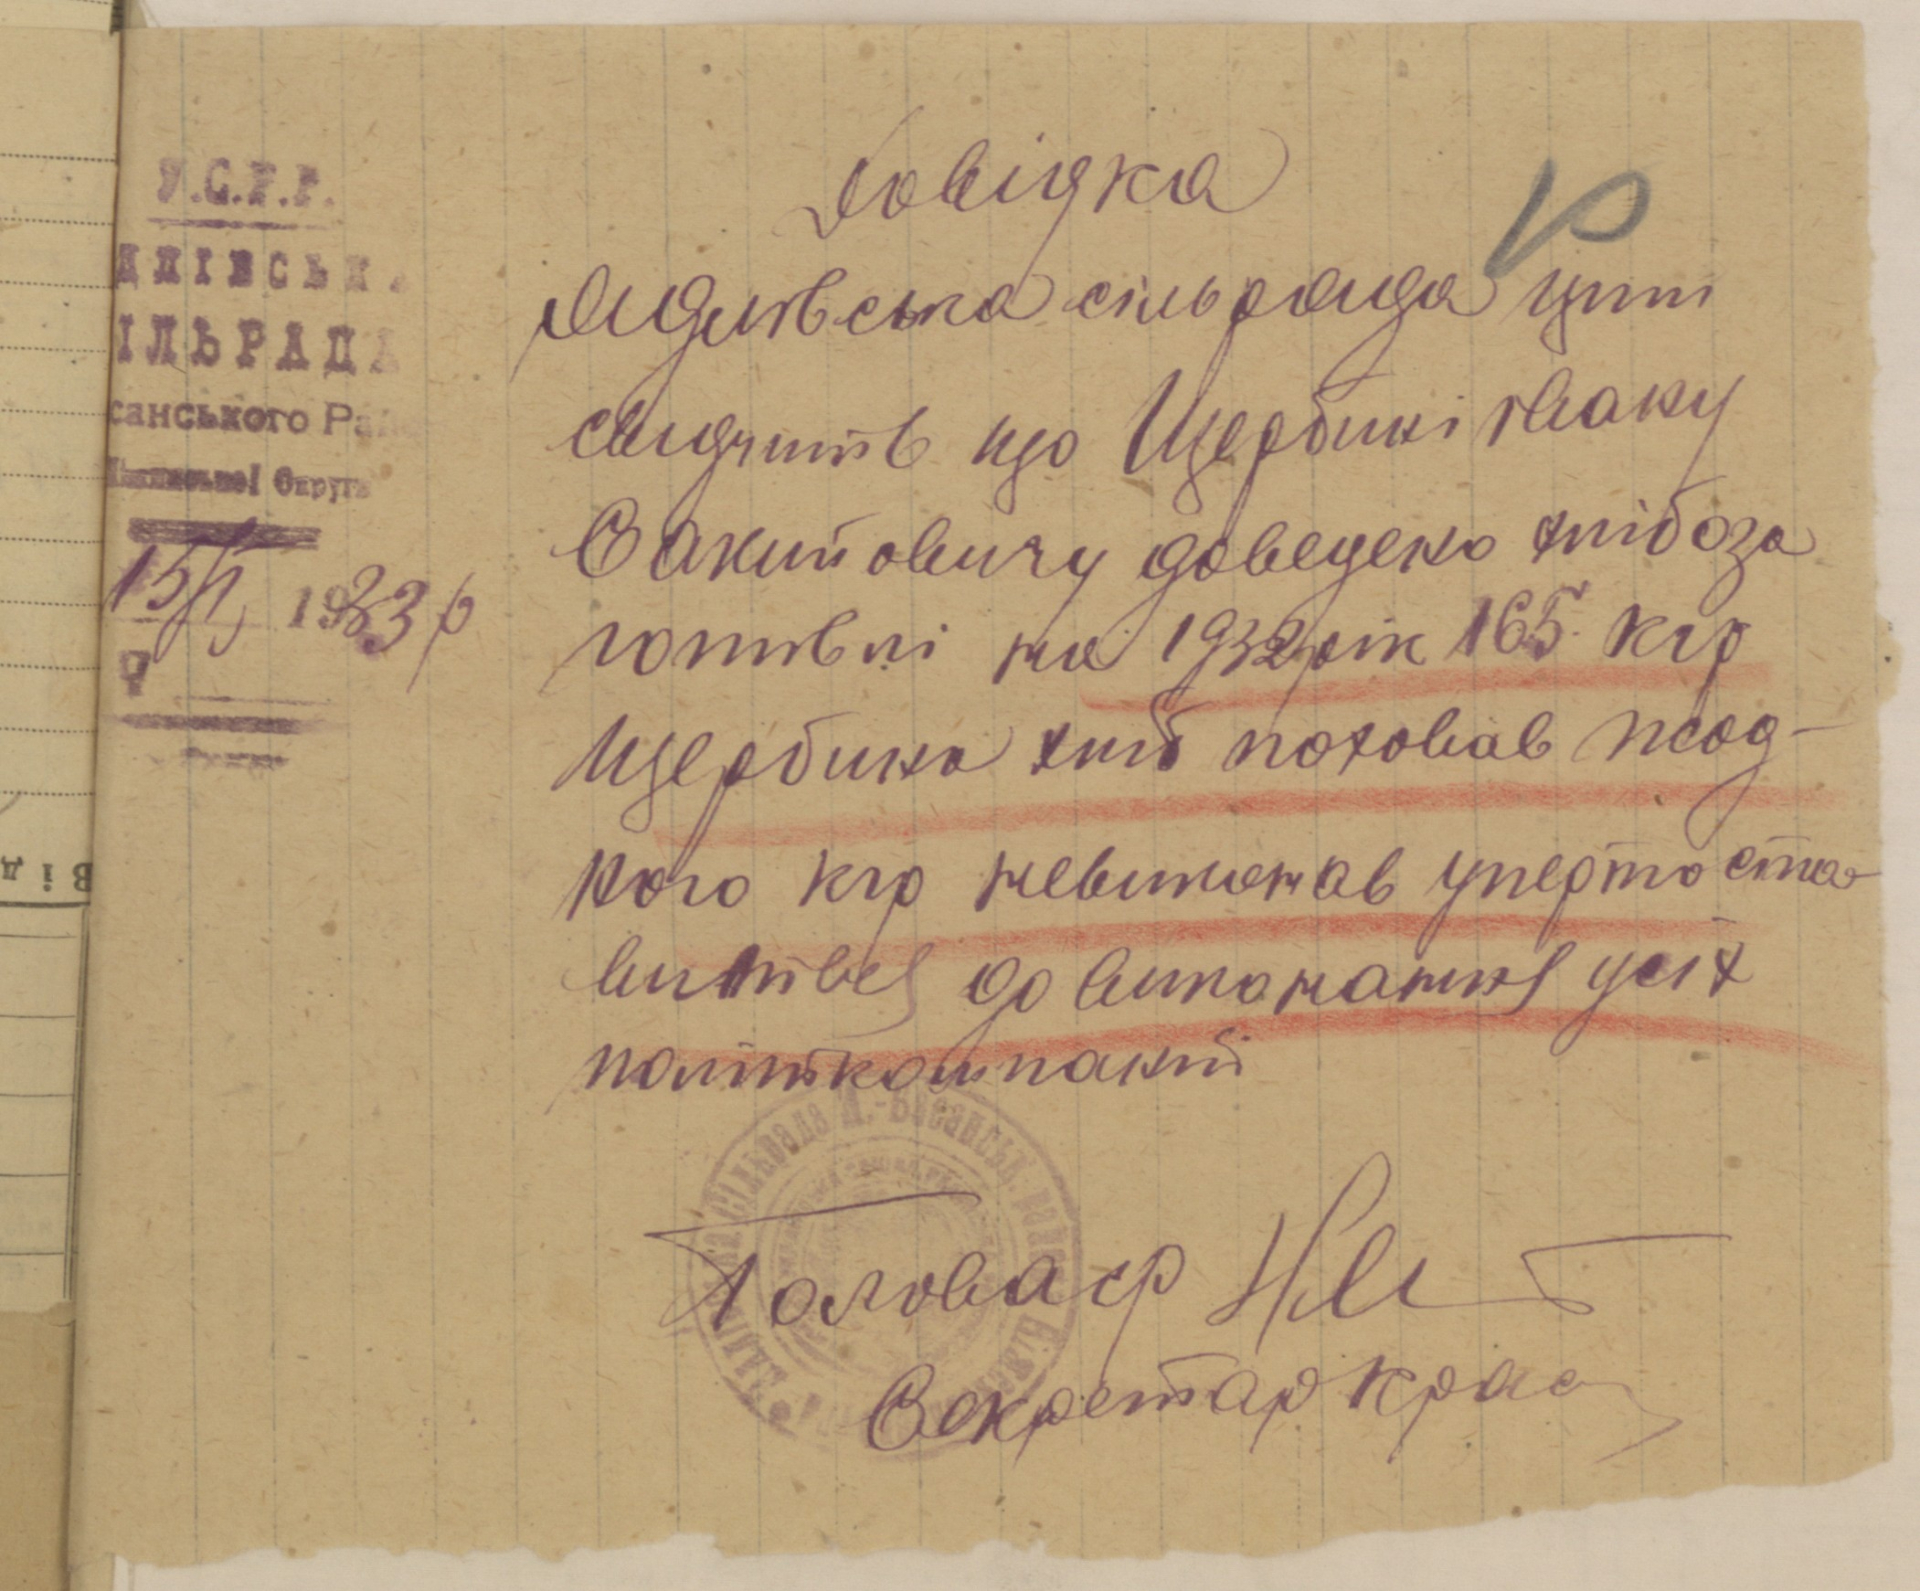 У.С.Р.Р.
ДЛІВСЬК
ІЛЬРАДА
санського Рай
Округи
15/І 1933 р
Довідка
сільрада цим
свидчить що Щербині Якову
Єакимовичу доведено хлібоза
готівлі на 1932 рік 165 кгр
Щербина хліб поховав жод-
ного кгр невиконав уперто ста
вится до виконання усіх
політкомпаній
Голова ср
Секретар Крас
Сільрада Н.-Басанськ. рай
Від